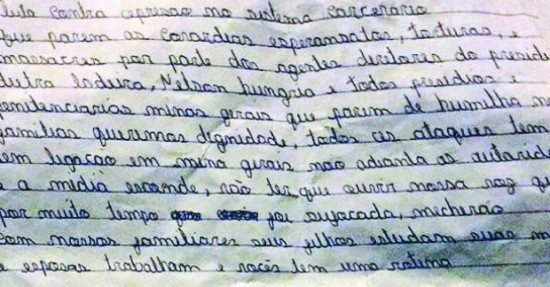 luta contra opressão no sistema carcerario
que parem as covardias espancamentos, torturas, e
massacres por parte dos agentes diretores do preside
dutra ladeira, Nelson hungria e todos presidios e
penitenciarias minas gerais que parem de humilha no
familias queremos dignidade, todos os ataques tem
em legacao em mina gerais nao adianta as autorida
e a midia esconde, vão ter que ouvir nossa voz q
por muito tempo foi sufocada, mecherão
com nossos familiares seus filhos estudam suas m
e esposas trabalham e voces tem uma rotina